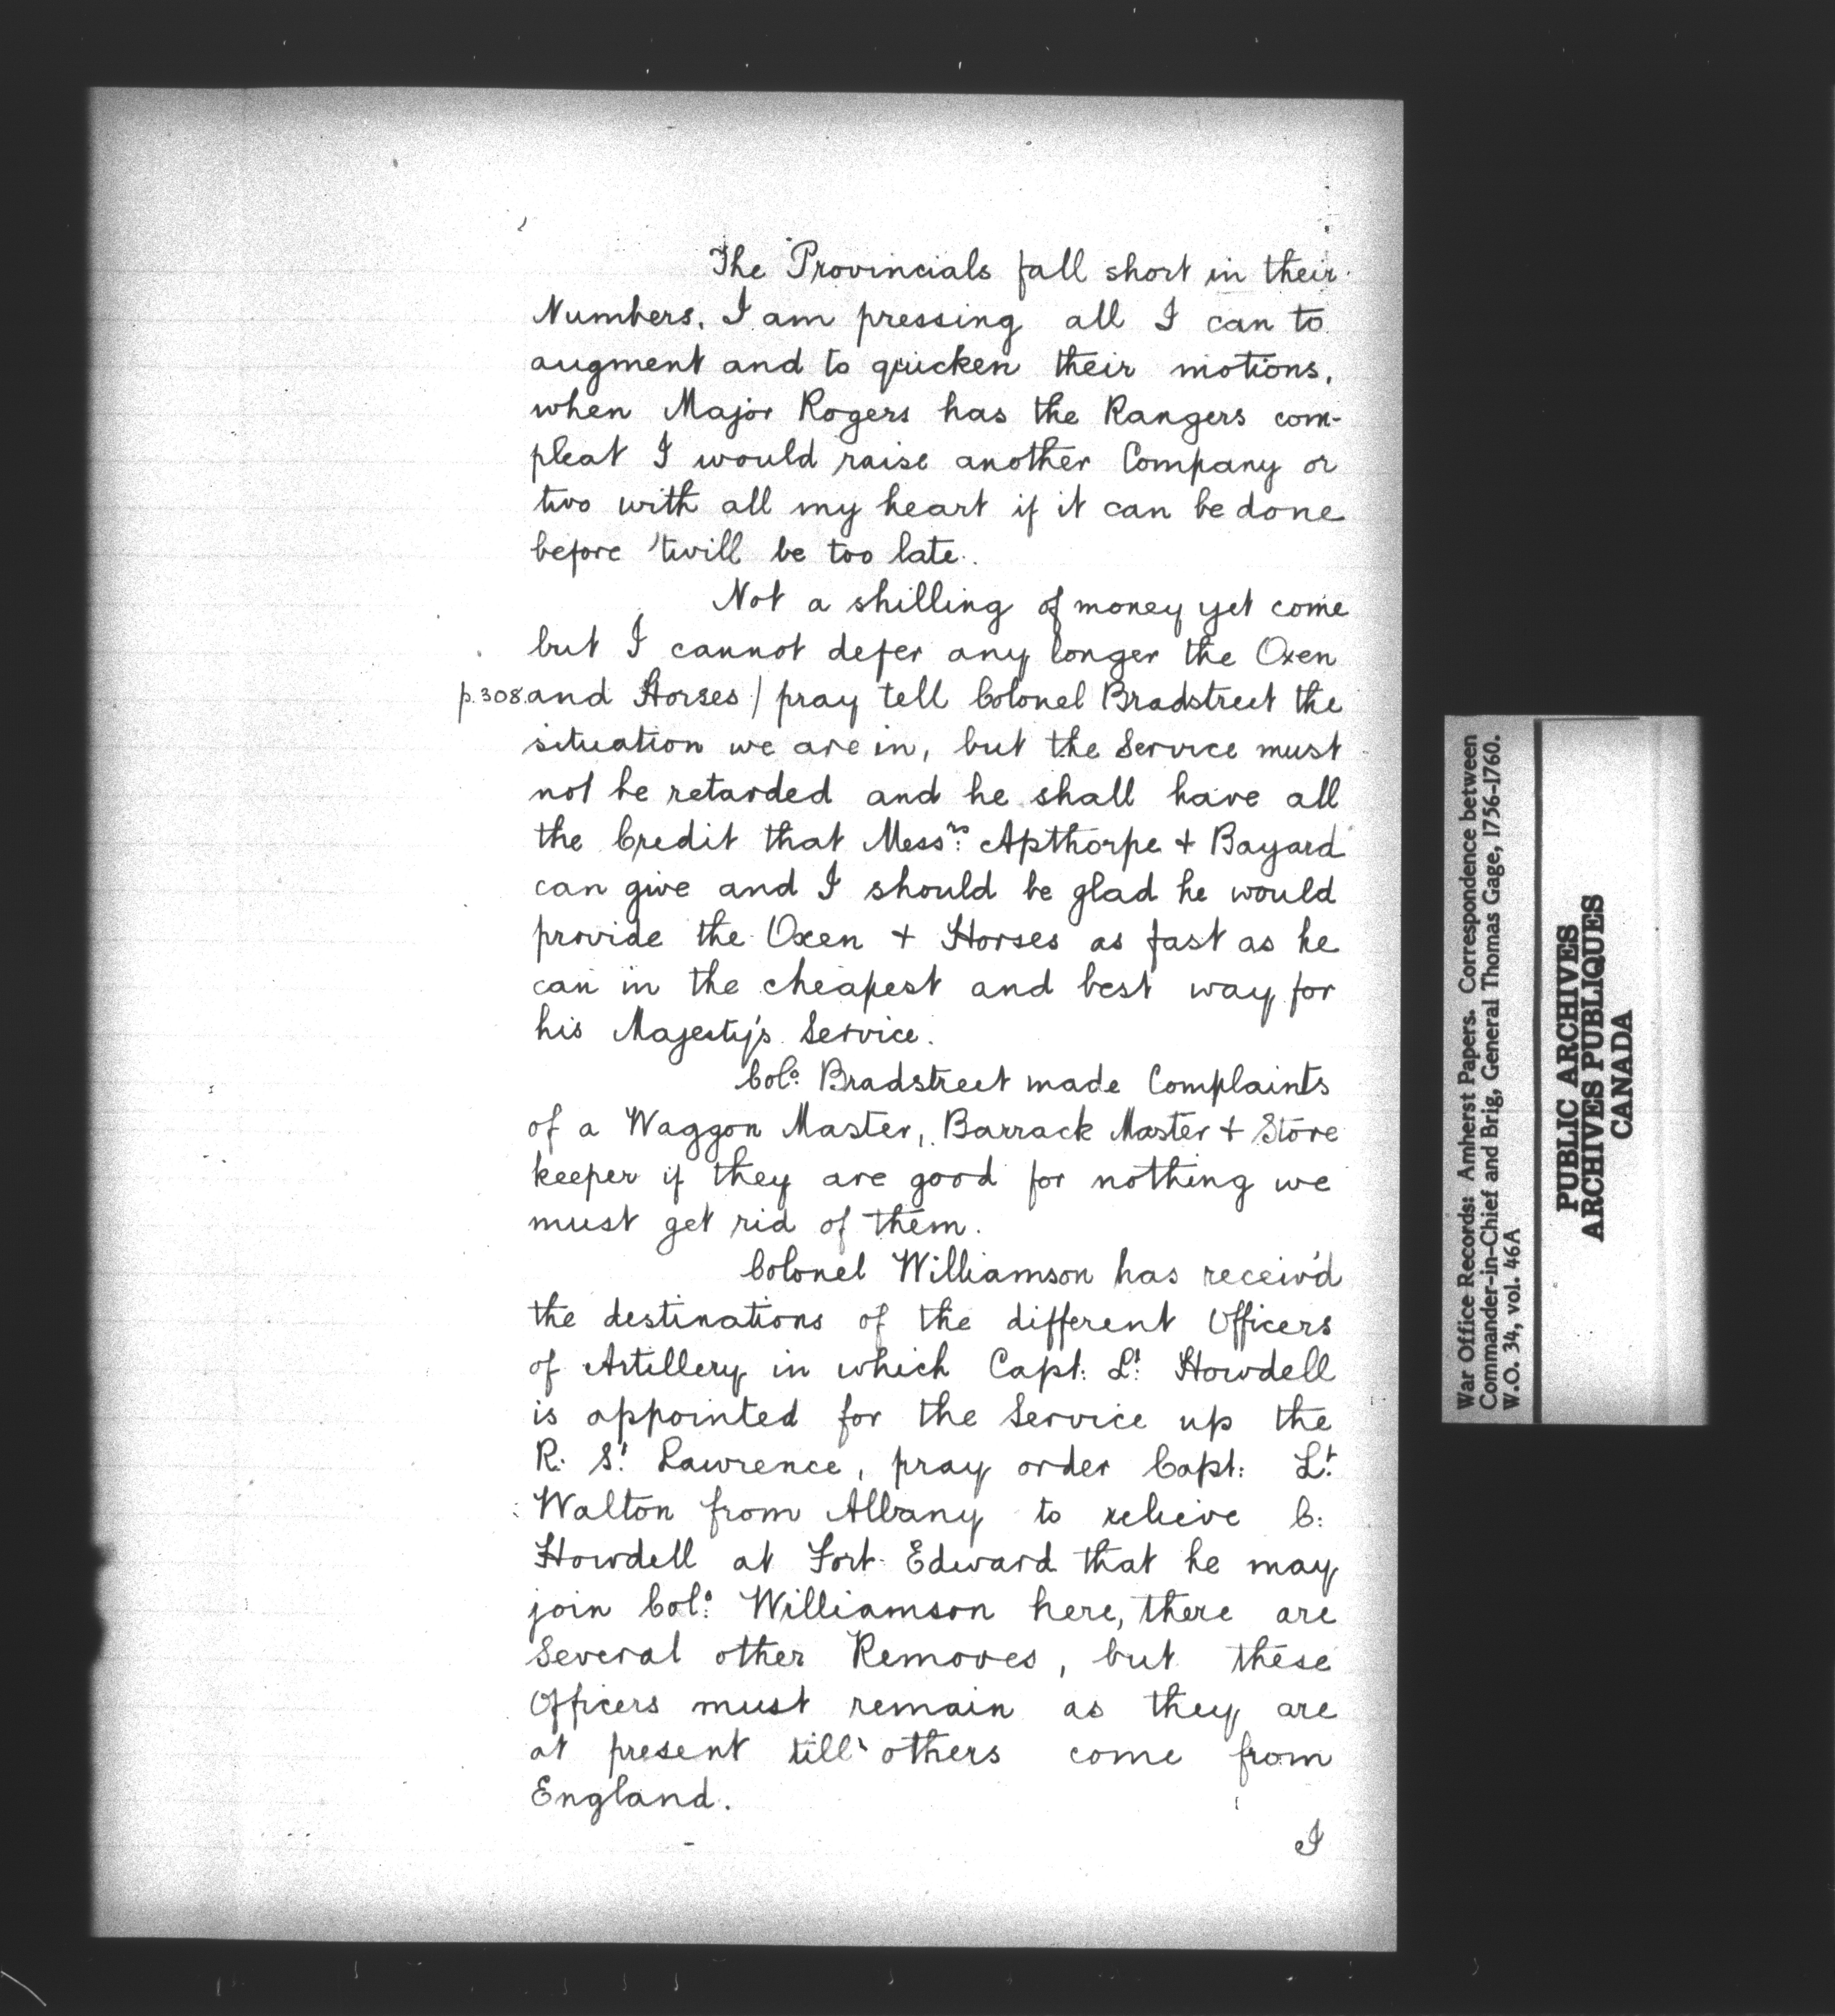 The Provincials fall short in their
Numbers. I am pressing all I can to
augment and to quicken their motions.
when Major Rogers has the Rangers com-
pleat I would raise another Company or
two with all my heart if it can be done
before 'twill be too late.
Not a shilling of money yet come
but I cannot defer any longer the Oxen
p.308. and Horses / pray tell Colonel Bradstreet the
situation we are in, but the Service must
not be retarded and he shall have all
the Credit that Messrs: Apthorpe + Bayard
can give and I should be glad he would
provide the Oxen + Horses as fast as he
can in the cheapest and best way for
his Majesty's Service.
Colo: Bradstreet made Complaints
of a Waggon Master, Barrack Master + Store
keeper if they are good for nothing we
must get rid of them.
Colonel Williamson has receiv'd
the destinations of the different Officers
of Artillery in which Capt: Lt: Howdell
is appointed for the Service up the
R. St. Lawrence, pray order Capt: Lt.
Walton from Albany to relieve C:
Howdell at Fort Edward that he may
join Colo: Williamson here, there are
Several other Removes, but these
Officers must remain as they are
at present till others come from
England.
I
War Office Records: Amherst Papers. Correspondence between
Commander-in-Chief and Brig, General Thomas Gage, 1756-1760.
W.O. 34, vol. 46A
PUBLIC ARCHIVES
ARCHIVES PUBLIQUES
CANADA